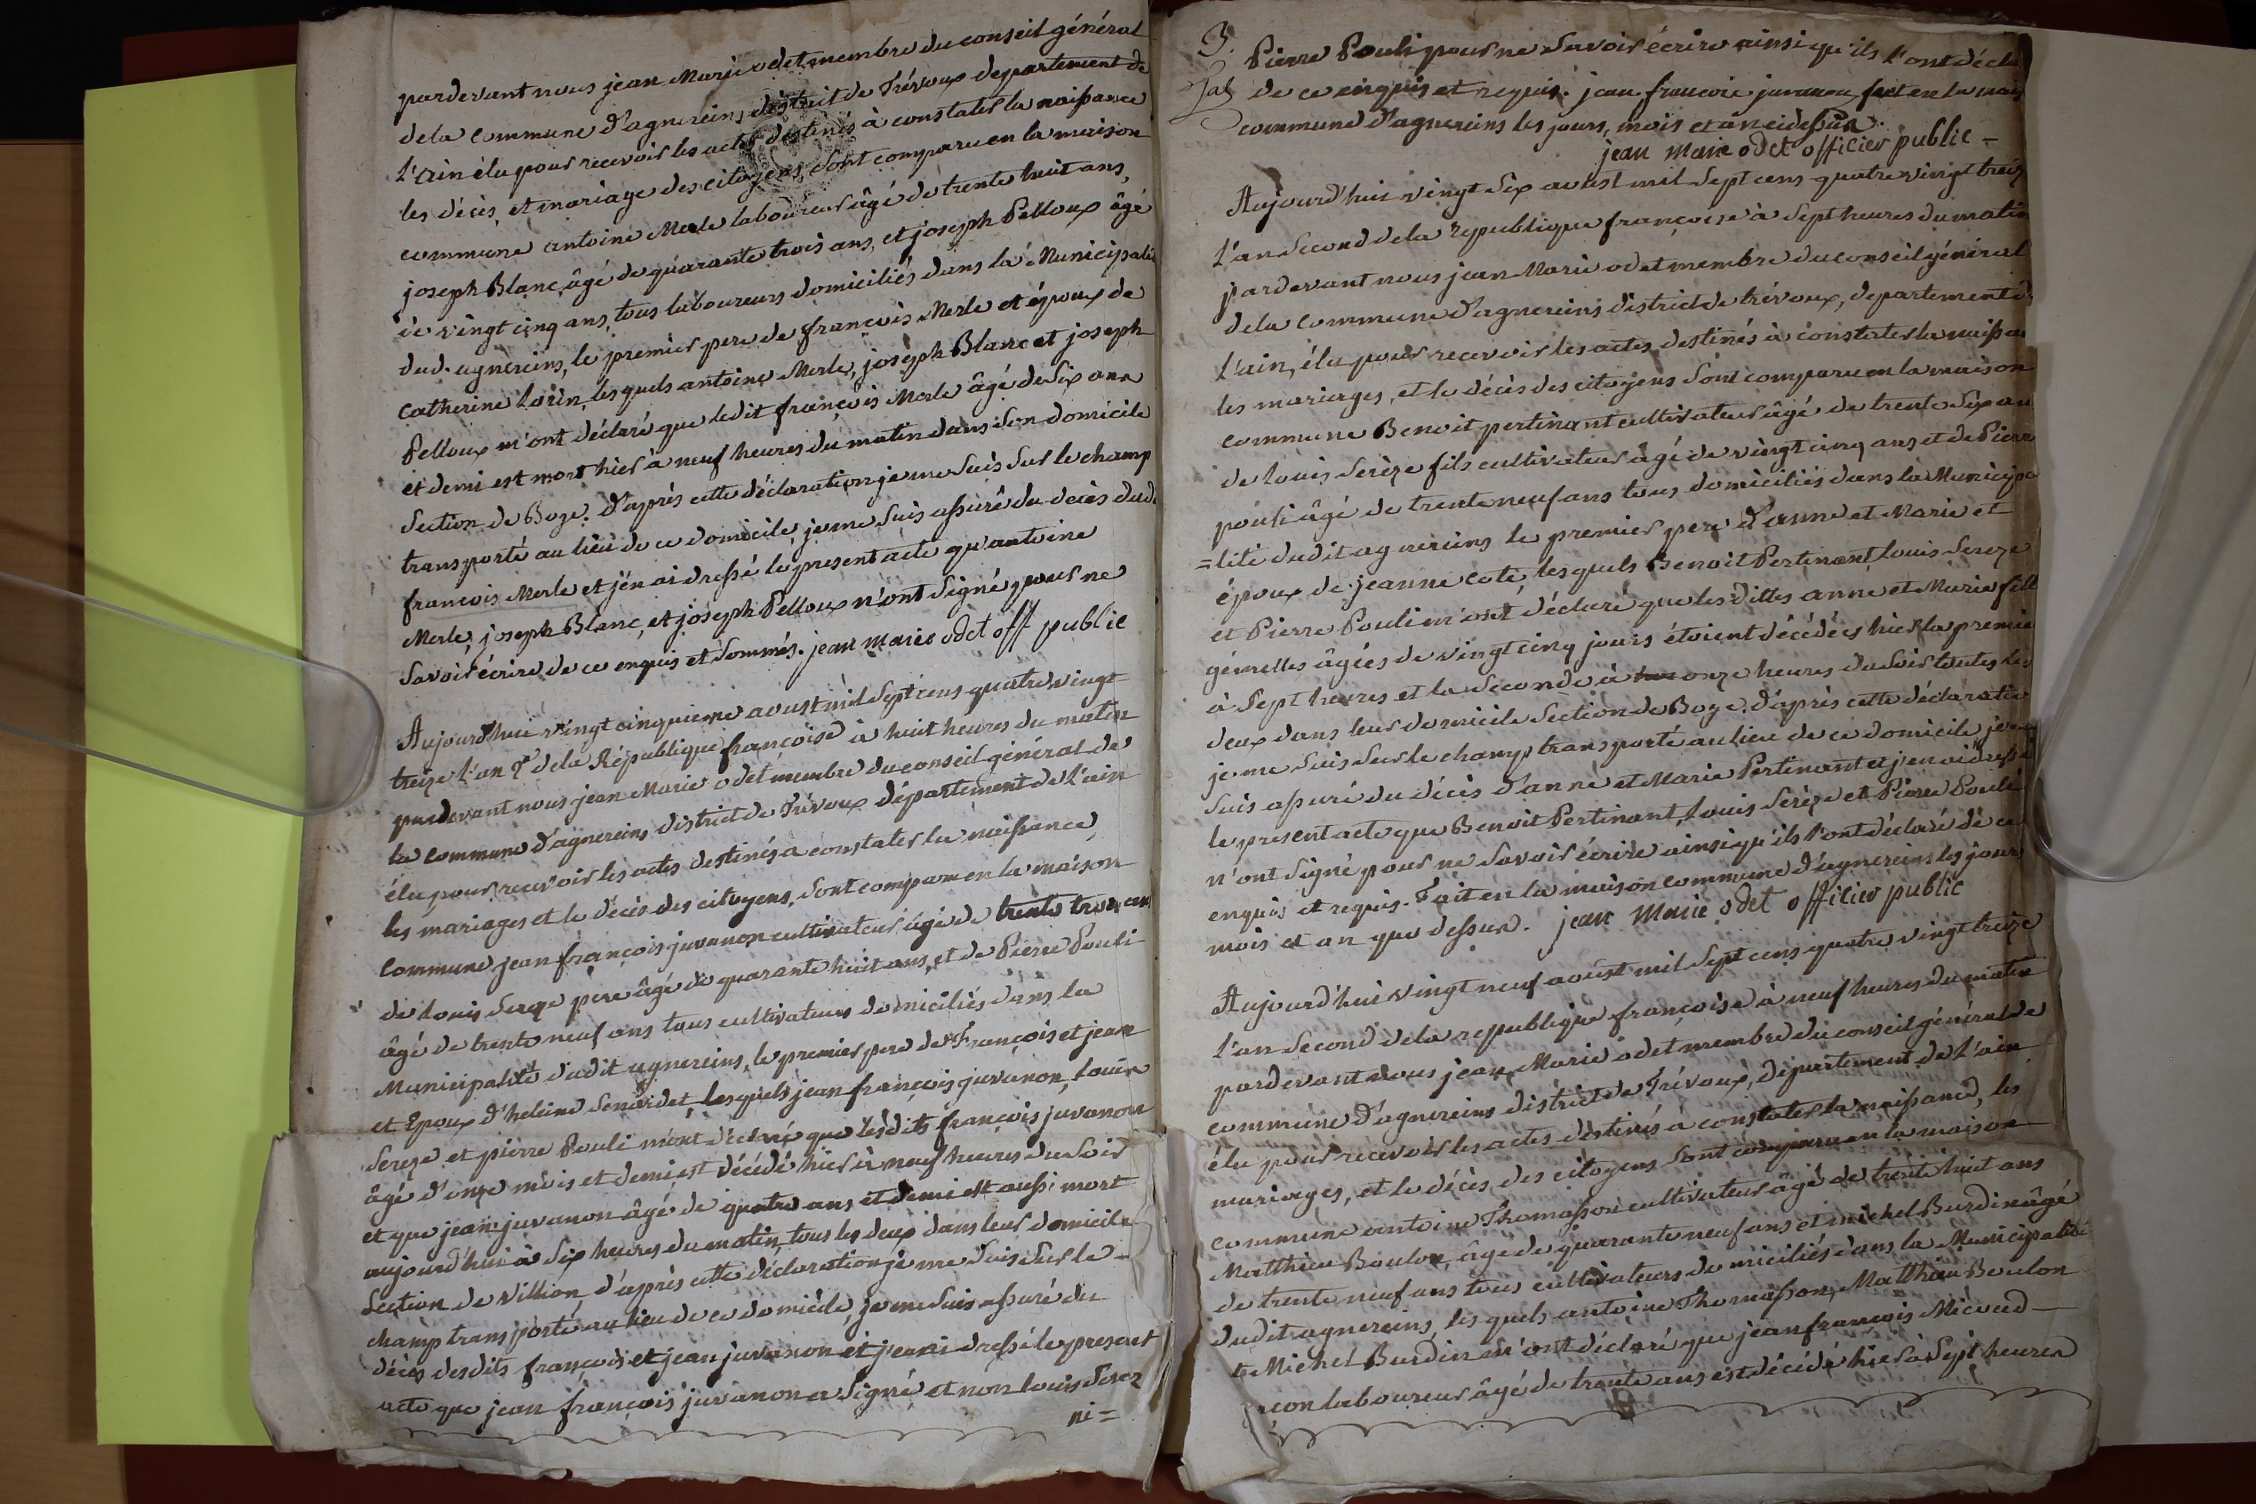 pardevant nous jean Marie odet membre du conseil général
de la commune d'agnereins, district de Trévoux département de
l'ain élu pour recevoir les actes destinés à constater la naissance
les décès, et mariage des citoyens, sont comparu en la maison
commune antoine Merle laboureur âgé de trente huit ans,
joseph Blanc âgé de quarante trois ans, et joseph Pelloux âgé
de vingt cinq ans, tous laboureurs domiciliés dans la Municipali
dud. agnereins, le premier pere de françois Merle et époux de
Catherine lorin, les quels antoine Merle, joseph Blanc et joseph
Pelloux m'ont déclaré que ledit françois Merle âgé de six ans
et demi est mort hier à neuf heures du matin dans son domicile
Section de Boze. d'après cette déclaration je me suis sur le champ
transporté au lieu de ce domicile, je me suis assuré du decès dud.
francois Merle et j'en ai dressé le present acte qu'antoine
Merle, joseph Blanc, et joseph Pelloux n'ont signé pour ne
savoir écrire de ce enquis et sommés. jean marie odet off public
Aujourd'hui vingt cinquieme aoust mil sept cens quatre vingt
treize l'an 2e de la République françoise à huit heures du matin
pardevant nous jean Marie odet membre du conseil général de
la commune d'agnereins district de Trévoux département de l'ain
élu pour recevoir les actes destinés a constater la naissance,
les mariages et le décès des citoyens, sont comparu en la maison
commune jean françois juvanon cultivateur âgé de trente trois ans
de louis Sereze pere âgé de quarante huit ans, et de Pierre Pouli
âgé de trente neuf ans tous cultivateurs domiciliés dans la
Municipalité dudit agnereins, le premier pere de François et jean
et Epoux d'heleine lesquels jean françois juvanon, louis
Sereze et pierre Pouli m'ont déclaré que lesdits françois juvanon
âgé d'onze mois et demi est décédé hier à neuf heures du soir
et que jean juvanon âgé de quatre ans et demi est aussi mort
aujourd'hui à six heures du matin, tous les deux dans leur domicile
Section de Villion, d'après cette déclaration je me suis sur le
champ transporté au lieu de ce domicile, je me suis assuré du
décès desdits françois et jean juvanon et j'en ai dressé le present
acte que jean françois juvanon a signé et non louis Serez
ni =
3.
Pierre Pouli pour ne savoir écrire ainsi qu'ils l'ont décla
de ce enquis et requis. jean françois juvanon fait en la mais
commune d'agnereins les jours, mois et an ci dessus.
jean marie odet officier public -
Aujourd'hui vingt six aoust mil sept cens quatre vingt treiz
l'an second de la republique françoise à sept heures du matin
pardevant nous jean Marie odet membre du conseil général
de la commune d'agnereins district de trévoux, departement de
l'ain, élu pour recevoir les actes destinés à constater la naissan
les mariages, et le décès des citoyens sont comparu en la maison
commune Benoit pertinant cultivateur âgé de trente six an
de louis Serèze fils cultivateur âgé de vingt cinq ans et de Pierre
pouli âgé de trente neuf ans tous domiciliés dans la Municipa
=lité dudit agnereins le premier pere d'anne et Marie et
époux de jeanne coté, lesquels Benoit Pertinant, louis Sereze
et Pierre Pouli m'ont déclaré que lesdittes anne et Marie fill
gémelles âgées de vingt cinq jours étoient décédées hier la premie
à sept heures et la seconde à onze heures du soir toutes les
deux dans leur domicile Section de Boze. d'après cette déclaratio
je me suis sur le champ transporté au lieu de ce domicile je me
suis assuré du décès d'anne et Marie Pertinant et j'en ai dressé
le present acte que Benoit Pertinant, louis Serèze et Pierre Pouli
n'ont signé pour ne savoir écrire ainsi qu'ils l'ont déclaré de ce
enquis et requis. Fait en la maison commune d'agnereins les jours
mois et an que dessus. jean marie odet officier public
Aujourd'hui vingt neuf aoust mil sept cens quatre vingt treize
l'an second de la republique françoise à neuf heures du matin
pardevant nous jean Marie odet membre du conseil général de
commune d'agnereins district de Trévoux, département de l'ain
élu pour recevoir les actes destinés à constater la naissance, les
mariages, et le décès des citoyens sont comparu en la maison
commune antoine Thomasson cultivateur âgé de trente huit ans
Matthieu Boulon, âgé de quarante neuf ans et michel Burdin âgé
de trente neuf ans tous cultivateurs domiciliés dans la Municipalité
dudit agnereins, lesquels antoine Thomasson, Matthieu Boulon
et Michel Burdin m'ont déclaré que jean françois Micoud
laboureur âgé de trente ans est décédé hier à sept heures